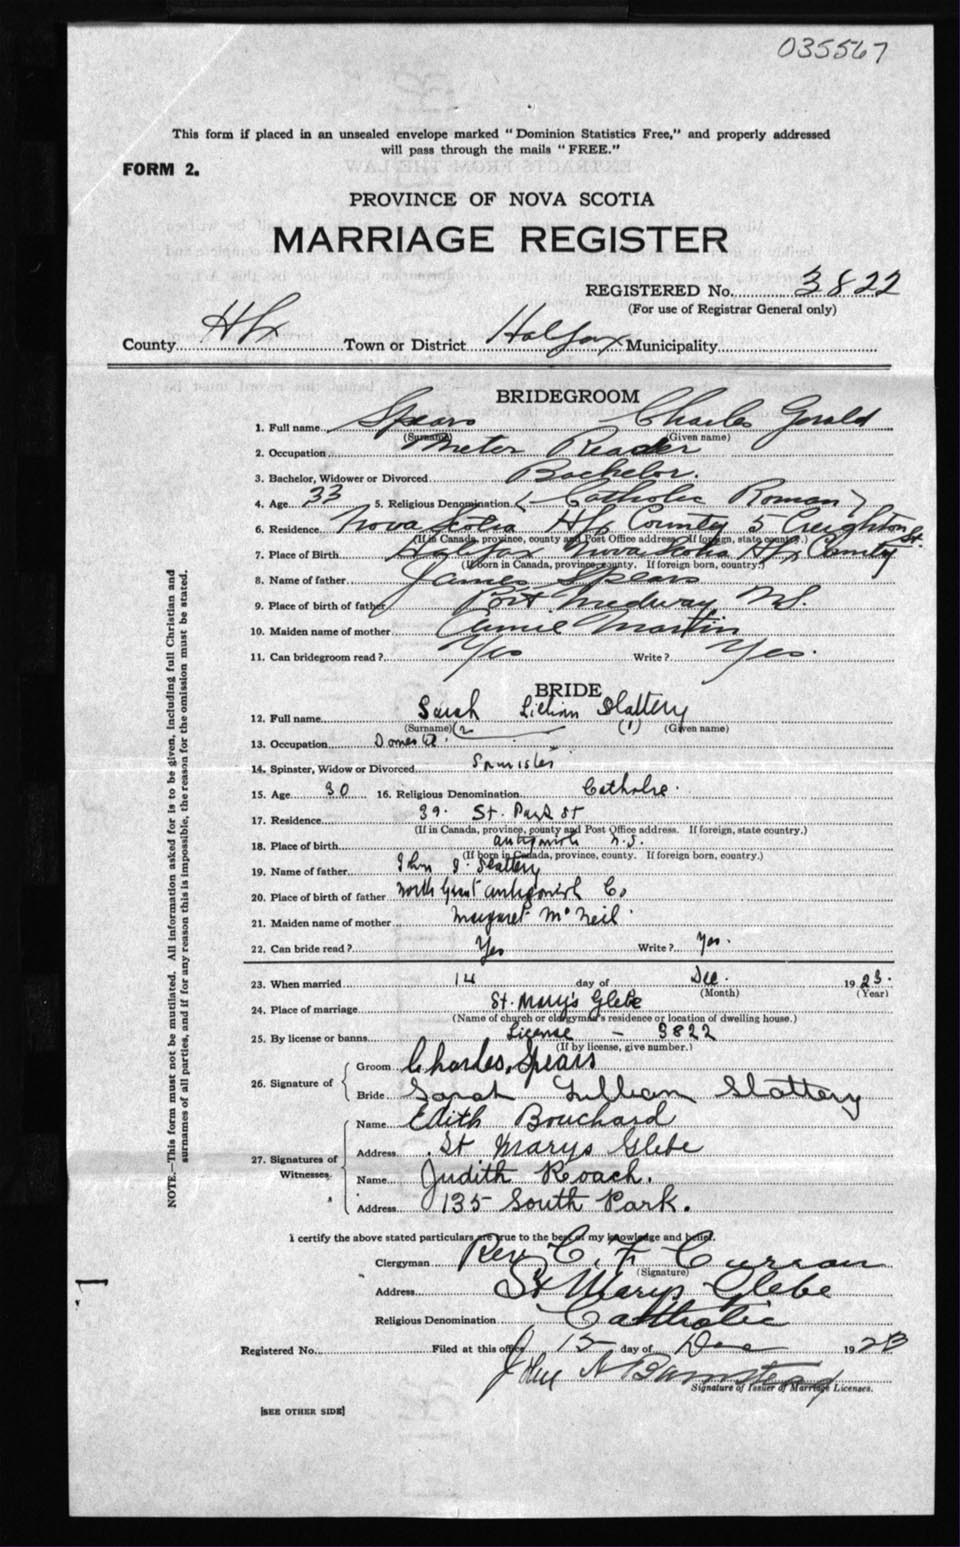 035567
This form if placed in an unsealed envelope marked "Dominion Statistics Free," and properly addressed
will pass through the mails "FREE."
FORM 2.
PROVINCE OF NOVA SCOTIA
MARRIAGE REGISTER
REGISTERED No. 3822
(For use of Registrar General only)
County Hfx Town or District Halifax Municipality
BRIDEGROOM
1. Full name Spears Charles Gerald
(Surname) (Given name)
2. Occupation Meter Reader
3. Bachelor, Widower or Divorced Bachelor.
4. Age 33 5. Religious Denomination (Catholic Roman)
6. Residence Nova Scotia Hfx County 5 Creighton St.
(If in Canada, province, county and Post Office address. If foreign, state country.)
7. Place of Birth Halifax Nova Scotia Hfx County
(If born in Canada, province, county. If foreign born, country.)
8. Name of father James Spears
9. Place of birth of father Port Medway N.S.
10. Maiden name of mother Annie Martin
11. Can bridegroom read? Yes Write? Yes.
BRIDE
12. Full name Sarah Lillian Slattery
(Surname) (2 (1) (Given name)
13. Occupation Domestic.
14. Spinster, Widow or Divorced Spinister
15. Age 30 16. Religious Denomination Catholic.
17. Residence 39. St. Park St
(If in Canada, province, county and Post Office address. If foreign, state country.)
18. Place of birth Antigonish N.S.
(If born in Canada, province, county. If foreign born, country.)
19. Name of father John J. Slattery
20. Place of birth of father North Grant Antigonish Co
21. Maiden name of mother Margaret McNeil
22. Can bride read? Yes Write? Yes.
23. When married 14 day of Dec. 1923.
(Month) (Year)
24. Place of marriage St. Mary's Glebe
(Name of church or clergyman's residence or location of dwelling house.)
25. By license or banns License - 3822
(If by license, give number.)
26. Signature of Groom Charles Spears
Bride Sarah Lillian Slattery
27. Signatures of Witnesses Name Edith Bouchard
Address St Marys Glebe
Name Judith Roach.
Address 135 South Park.
I certify the above stated particulars are true to the best of my knowledge and belief.
Clergyman Rev C. F. Curran
(Signature)
Address St Marys Glebe
Religious Denomination Catholic
Registered No. Filed at this office 15 day of Dec 1923
John A Barnstead
Signature of Issuer of Marriage Licenses.
[SEE OTHER SIDE]
NOTE.—This form must not be mutilated. All information asked for is to be given, including full Christian and
surnames of all parties, and if for any reason this is impossible, the reason for the omission must be stated.